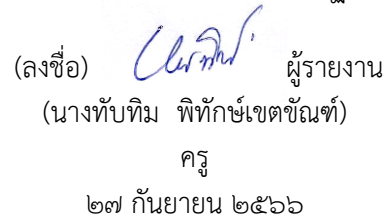 (ลงชื่อ) ผู้รายงาน
(นางทับทิม พิทักษ์เขตขัณฑ์)
ครู
๒๗ กันยายน ๒๕๖๖